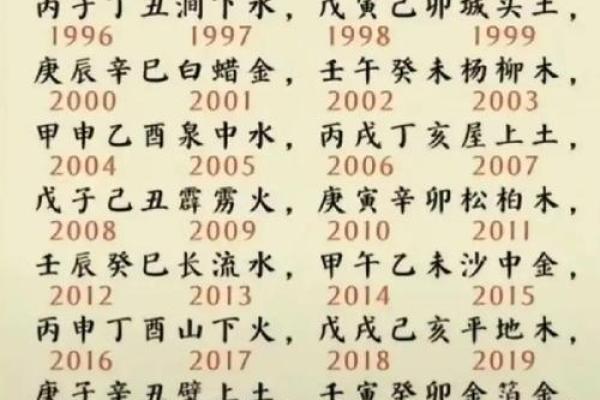 丙子丁丑涧下水，戊寅己卯城头土，
1996 1997 1998 1999
庚辰辛巳白蜡金，壬午癸未杨柳木，
2000 2001 2002 2003
甲申乙酉泉中水，丙戌丁亥屋上土，
2004 2005 2006 2007
戊子己丑霹雳火，庚寅辛卯松柏木，
2008 2009 2010 2011
壬辰癸巳长流水，甲午乙未沙中金，
2012 2013 2014 2015
丙申丁酉山下火，戊戌己亥平地木，
2016 2017 2018 2019
庚子辛丑壁上土，壬寅癸卯金箔金，